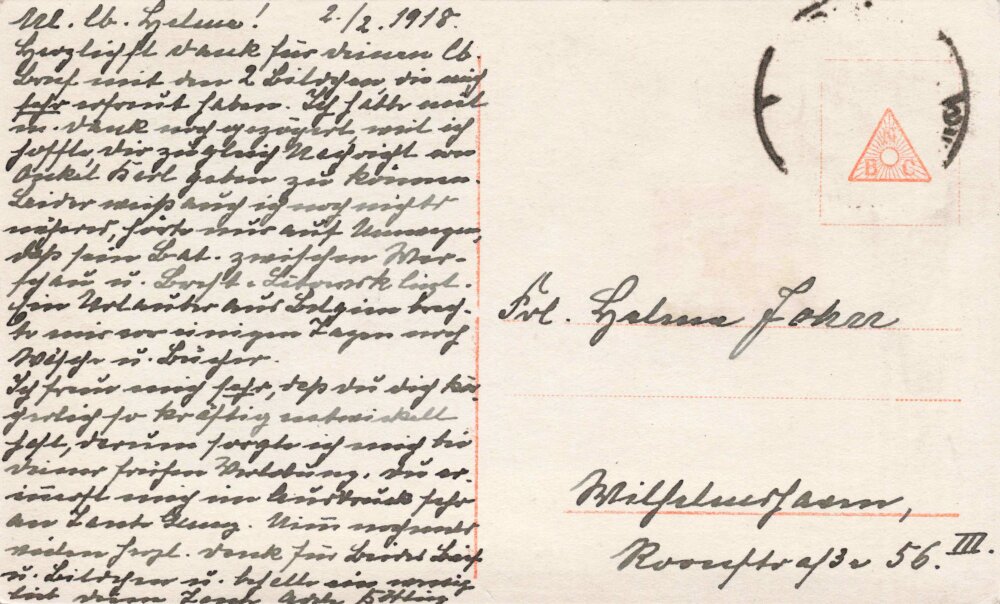 Ml. lb. Helma! 2./2.1918.
Herzlichst Dank für Deinen lb.
Brief mit den 2 Bildchen, die mich
sehr erfreut haben. Ich hatte mit
m. Dank noch gezögert, weil ich
hoffte, Dir zugleich Nachricht von
Onkel Karl geben zu können.
Leider weiß auch ich noch nichts
näheres, hörte nur auf Umwegen,
daß sein Bat. zwischen War-
schau u. Brest-Litowsk liegt.
Ein Urlauber aus Belgien brach-
te mir vor einigen Tagen noch
Wäsche u. Bücher.
Ich freue mich sehr, daß Du Dich kör-
perlich so kräftig entwickelt
hast, darum sorgte ich mich bei
Deiner frühen Verlobung. Du er-
innerst mich im Ausdruck sehr
an Tante Änny. Nimm nochmals
vielen herzl. Dank für Beides Brief
u. Bildchen u. behalte ein wenig
lieb Deine Tante
Frl. Helma Johr
Wilhelmshaven,
Roonstraße 56. III.
B C